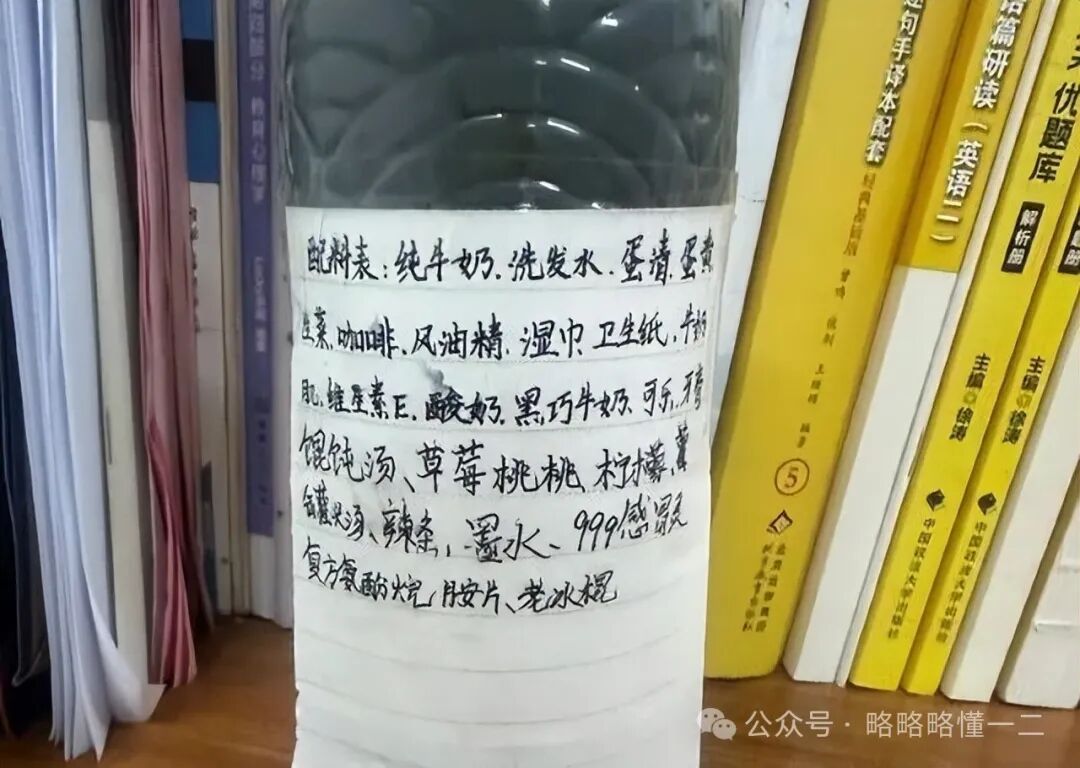 配料表：纯牛奶、洗发水、蛋清、蛋黄
生菜、咖啡、风油精、湿巾、卫生纸、牛奶
肌、维生素E、酸奶、黑巧牛奶、可乐、牙膏
馄饨汤、草莓、桃桃、柠檬、
罐头汤、辣条，墨水、999感冒灵
复方氨酚烷胺片、老冰棍
手译本配套
语篇研读（英语二）
优题库
解析册
主编 徐涛
主编 徐涛
中国政法大学出版社
中国政法大学出版社
5
公众号·略略略懂一二